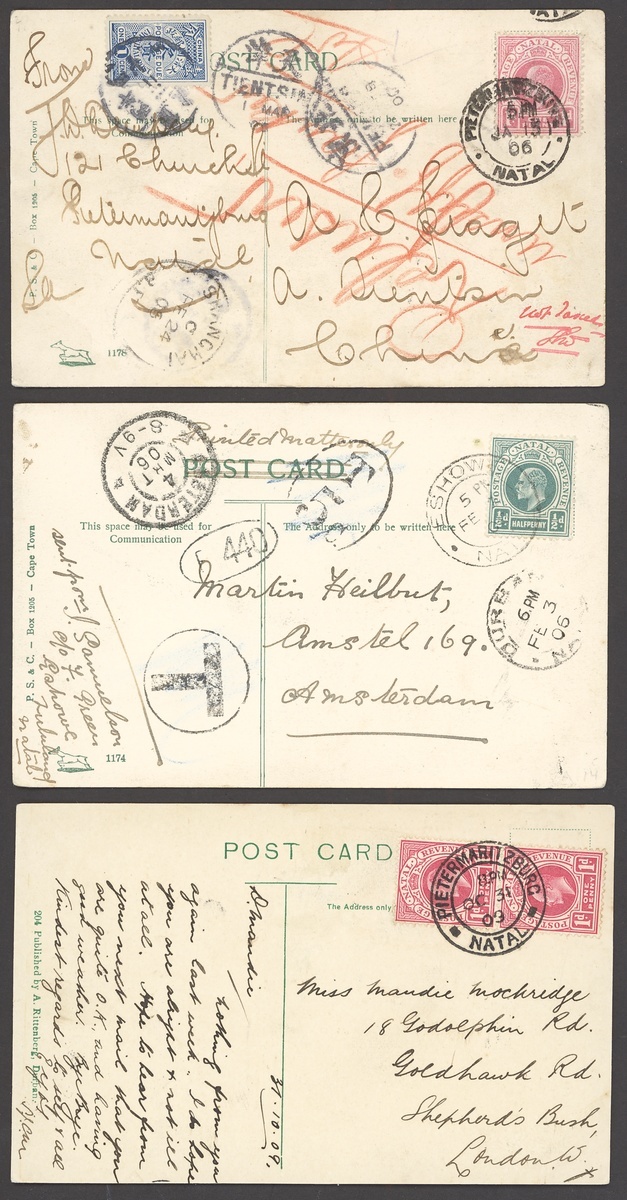 From
POST CARD
This space may be used for
Communication
The Address only to be written here
121 Church St
Pietermaritzburg
Natal
Sa
P. S. & C. — Box 1205 — Cape Town
1178
CHINA
POSTAGE DUE
ONE CENT
TIENTSIN
1 MAR
SHANGHAI
FE 24
06
NATAL
POSTAGE REVENUE
PIETERMARITZBURG
5 PM
JA 13
06
NATAL
A C Piaget
A. Tientsin
China
Printed Matter only
POST CARD
This space may be used for
Communication
The Address only to be written here
AMSTERDAM
4 MRT
06
8-9V
440
T
POSTAGE NATAL REVENUE
½d HALFPENNY ½d
ESHOWE
5 PM
FE
NATAL
DURBAN
6.PM
FE 3
06
Martin Heilbut,
Amstel 169.
Amsterdam
sent from J. Samuelson
c/o F. Green
Eshowe
Zululand
Natal
P. S. & C. — Box 1205 — Cape Town
1174
POST CARD
The Address only
NATAL
POSTAGE REVENUE
1d ONE PENNY 1d
PIETERMARITZBURG
OC 31
09
NATAL
31.10.09.
D. Maudie
Nothing from you
again last week. I do hope
you are alright & not ill
at all. Hope to hear from
you next mail that you
are quite O.K. and having
good weather. Bye Bye.
Kindest regards to self & all
204 Published by A. Rittenberg, Durban.
Miss Maudie Mockridge
18 Godolphin Rd.
Goldhawk Rd.
Shepherd's Bush,
London. W.